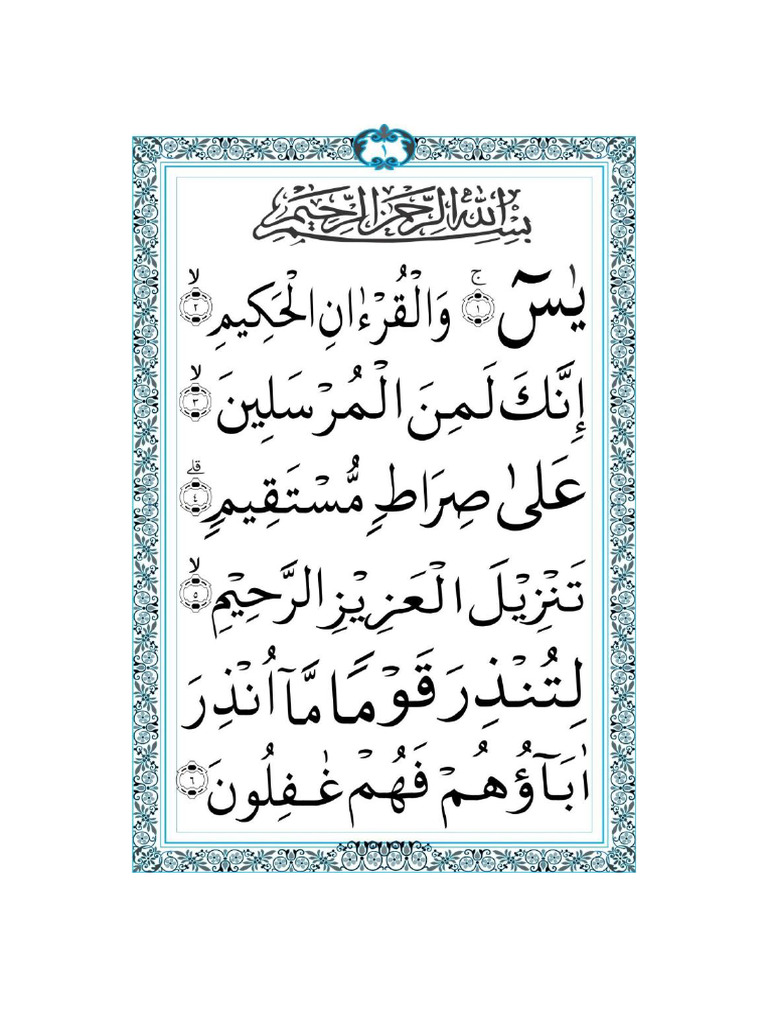 ١
بسم الله الرحمن الرحيم
يٰسٓ ۚ ١ وَالْقُرْءٰانِ الْحَكِيمِ ۙ ٢
إِنَّكَ لَمِنَ الْمُرْسَلِينَ ۙ ٣
عَلىٰ صِرَاطٍ مُّسْتَقِيمٍ ۗ ٤
تَنْزِيْلَ الْعَزِيْزِ الرَّحِيْمِ ۙ ٥
لِتُنْذِرَ قَوْمًا مَّآ اُنْذِرَ
اٰبَآؤُهُمْ فَهُمْ غٰفِلُونَ ٦